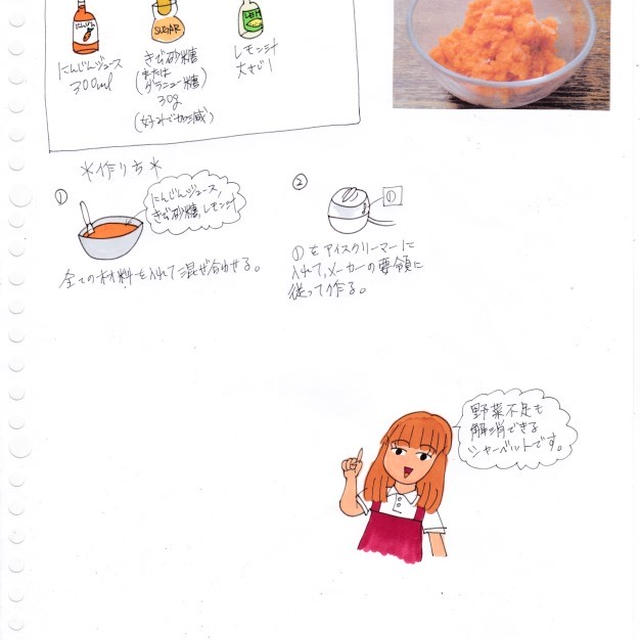 にんじん
SUGAR
にんじんジュース
300ml
きび砂糖
(または
グラニュー糖)
30g
(好みで加減)
レモン汁
大さじ1
*作り方*
①
にんじんジュース,
きび砂糖,レモン汁
全ての材料を入れて混ぜ合わせる。
②
①
①をアイスクリーマーに
入れて,メーカーの要領に
従って作る。
野菜不足も
解消できる
シャーベットです。